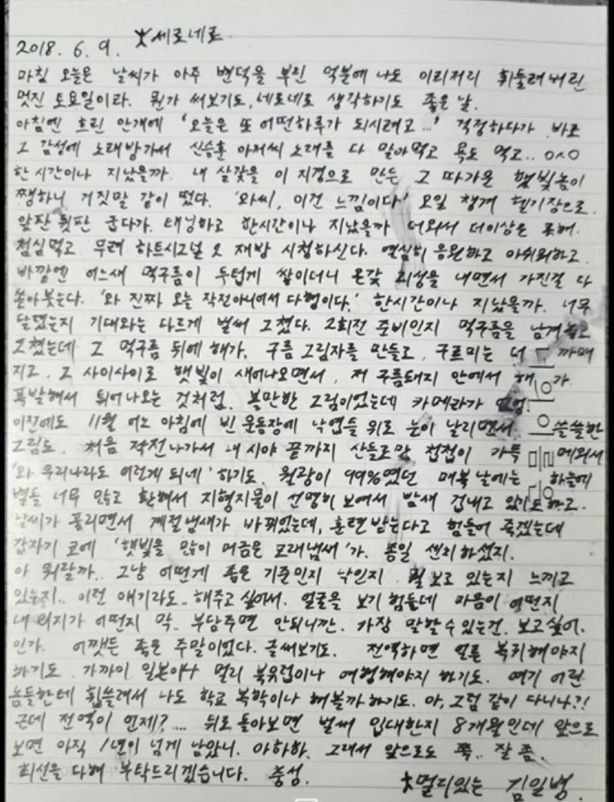 2018. 6. 9. ★세로네로
마침 오늘은 날씨가 아주 변덕을 부린 덕분에 나도 이리저리 휘둘려버린
멋진 토요일이라. 뭔가 써보기도, 네로네로 생각하기도 좋은 날.
아침엔 흐린 안개에 '오늘은 또 어떤하루가 되시려고...' 걱정하다가 바로
그 감성에 노래방가서 신승훈 아저씨 노래를 다 말아먹고 욕도 먹고.. ㅇㅅㅇ
한시간이나 지났을까. 내 살갗을 이 지경으로 만든 그 따가운 햇빛놈이
쨍하니 거짓말 같이 떴다. '와씨, 이건 느낌이다' 오일 챙겨 헬기장으로.
앞판 뒷판 굽다가. 태닝하고 한시간이나 지났을까 더워서 더이상은 못해.
점심먹고 무려 하트시그널 2 재방 시청하신다. 열심히 응원하고 아쉬워하고.
바깥엔 어느새 먹구름이 두텁게 쌓이더니 온갖 괴성을 내면서 가진걸 다
쏟아붓는다. '와 진짜 오늘 작전아니어서 다행이다.' 한시간이나 지났을까. 너무
달랬는지 기대와는 다르게 벌써 그쳤다. 2회전 준비인지 먹구름을 남겨놓고
그쳤는데 그 먹구름 뒤에 해가. 구름 그림자를 만들고, 구르미는 더 까매
지고. 그 사이사이로 햇빛이 새어나오면서, 저 구름돼지 안에서 해가
폭발해서 튀어나오는 것처럼. 볼만한 그림이었는데 카메라가
이전에도 11월 어느 아침에 빈 운동장에 낙엽들 위로 눈이 날리면서 쓸쓸한
그림도. 처음 작전나가서 내 시야 끝까지 산들로만 첩첩이 가득 메워서
'와 우리나라도 이렇게 되네' 하기도. 월광이 99%였던 매복날에는 하늘에
별들 너무 많고 환해서 지형지물이 선명히 보여서 밤새 겁내고 있기도하고.
날씨가 풀리면서 계절냄새가 바뀌었는데, 훈련받는다고 힘들어 죽겠는데
갑자기 코에 '햇빛을 많이 머금은 모래냄새'가. 종일 센치하셨지.
아 뭐랄까.. 그냥 어떻게 좁은 기준인지 낙인지 뭘 보고 있는지 느끼고
있는지.. 이런 얘기라도.. 해주고 싶어서. 얼굴을 보기 힘든데 마음이 어떤지
내 의지가 어떤지 막.. 부담주면 안되니깐. 가장 말할수 있는건. 보고싶어.
인가. 어쨌든 좋은 주말이었다. 글써보기도. 전역하면 얼른 복귀해야지
하기도. 가까이 일본이나 멀리 북유럽이나 여행해야지 하기도. 여기 어린
놈들한테 휩쓸려서 나도 학교 복학이나 해볼까하기도. 아, 그럼 같이 다니나?!
근데 전역이 언제?.... 뒤로 돌아보면 벌써 입대한지 8개월인데 앞으로
보면 아직 1년이 넘게 남았니. 아하하. 그래서 앞으로도 쭉.. 잘 좀.
최선을 다해 부탁드리겠습니다. 충성. ★멀리있는 김일병